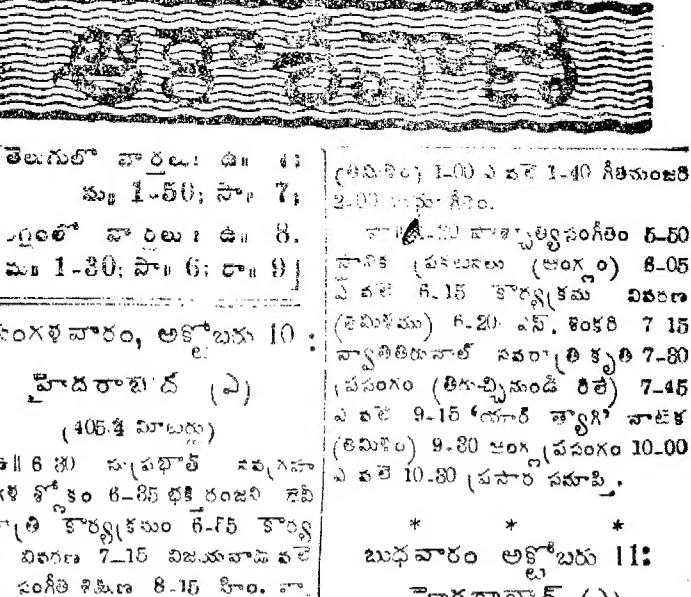 ఆకాశవాణి
తెలుగులో వార్తలు: ఉ॥ 4;
మ॥ 1-50; సా॥ 7;
వార్తలు: ఉ॥ 8.
మ॥ 1-30; సా॥ 6; రా॥ 9]
మంగళవారం, అక్టోబరు 10 :
హైదరాబాద్ (ఎ)
(405.4 మీటర్లు)
ఉ॥ 6 30 సుప్రభాత్ నవగ్రహ
శ్లోకం 6-35 భక్తి రంజని
కార్యక్రమం కార్య
వివరణ 7-15 విజయవాడ వలె
సంగీత శిక్షణ 8-15 హిం. వా.
(తమిళం) 1-00 ఎ వలె 1-40 గీతమంజరి
2-00
పాశ్చాత్యసంగీతం 5-50
స్థానిక ప్రకటనలు (ఆంగ్లం) 6-05
ఎ వలె 6.15 కార్యక్రమ వివరణ
6-20 ఎస్. శంకరి 7 15
స్వాతితిరునాల్ నవరాత్రి కృతి 7-30
ప్రసంగం (తిరుచ్చినుండి రిలే) 7-45
ఎ వలె 9-15 'యార్ త్యాగి' నాటిక
(తమిళం) 9-30 ఆంగ్ల ప్రసంగం 10-00
ఎ వలె 10-30 ప్రసార సమాప్తి.
* * *
బుధవారం అక్టోబరు 11:
హైదరాబాద్ (ఎ)